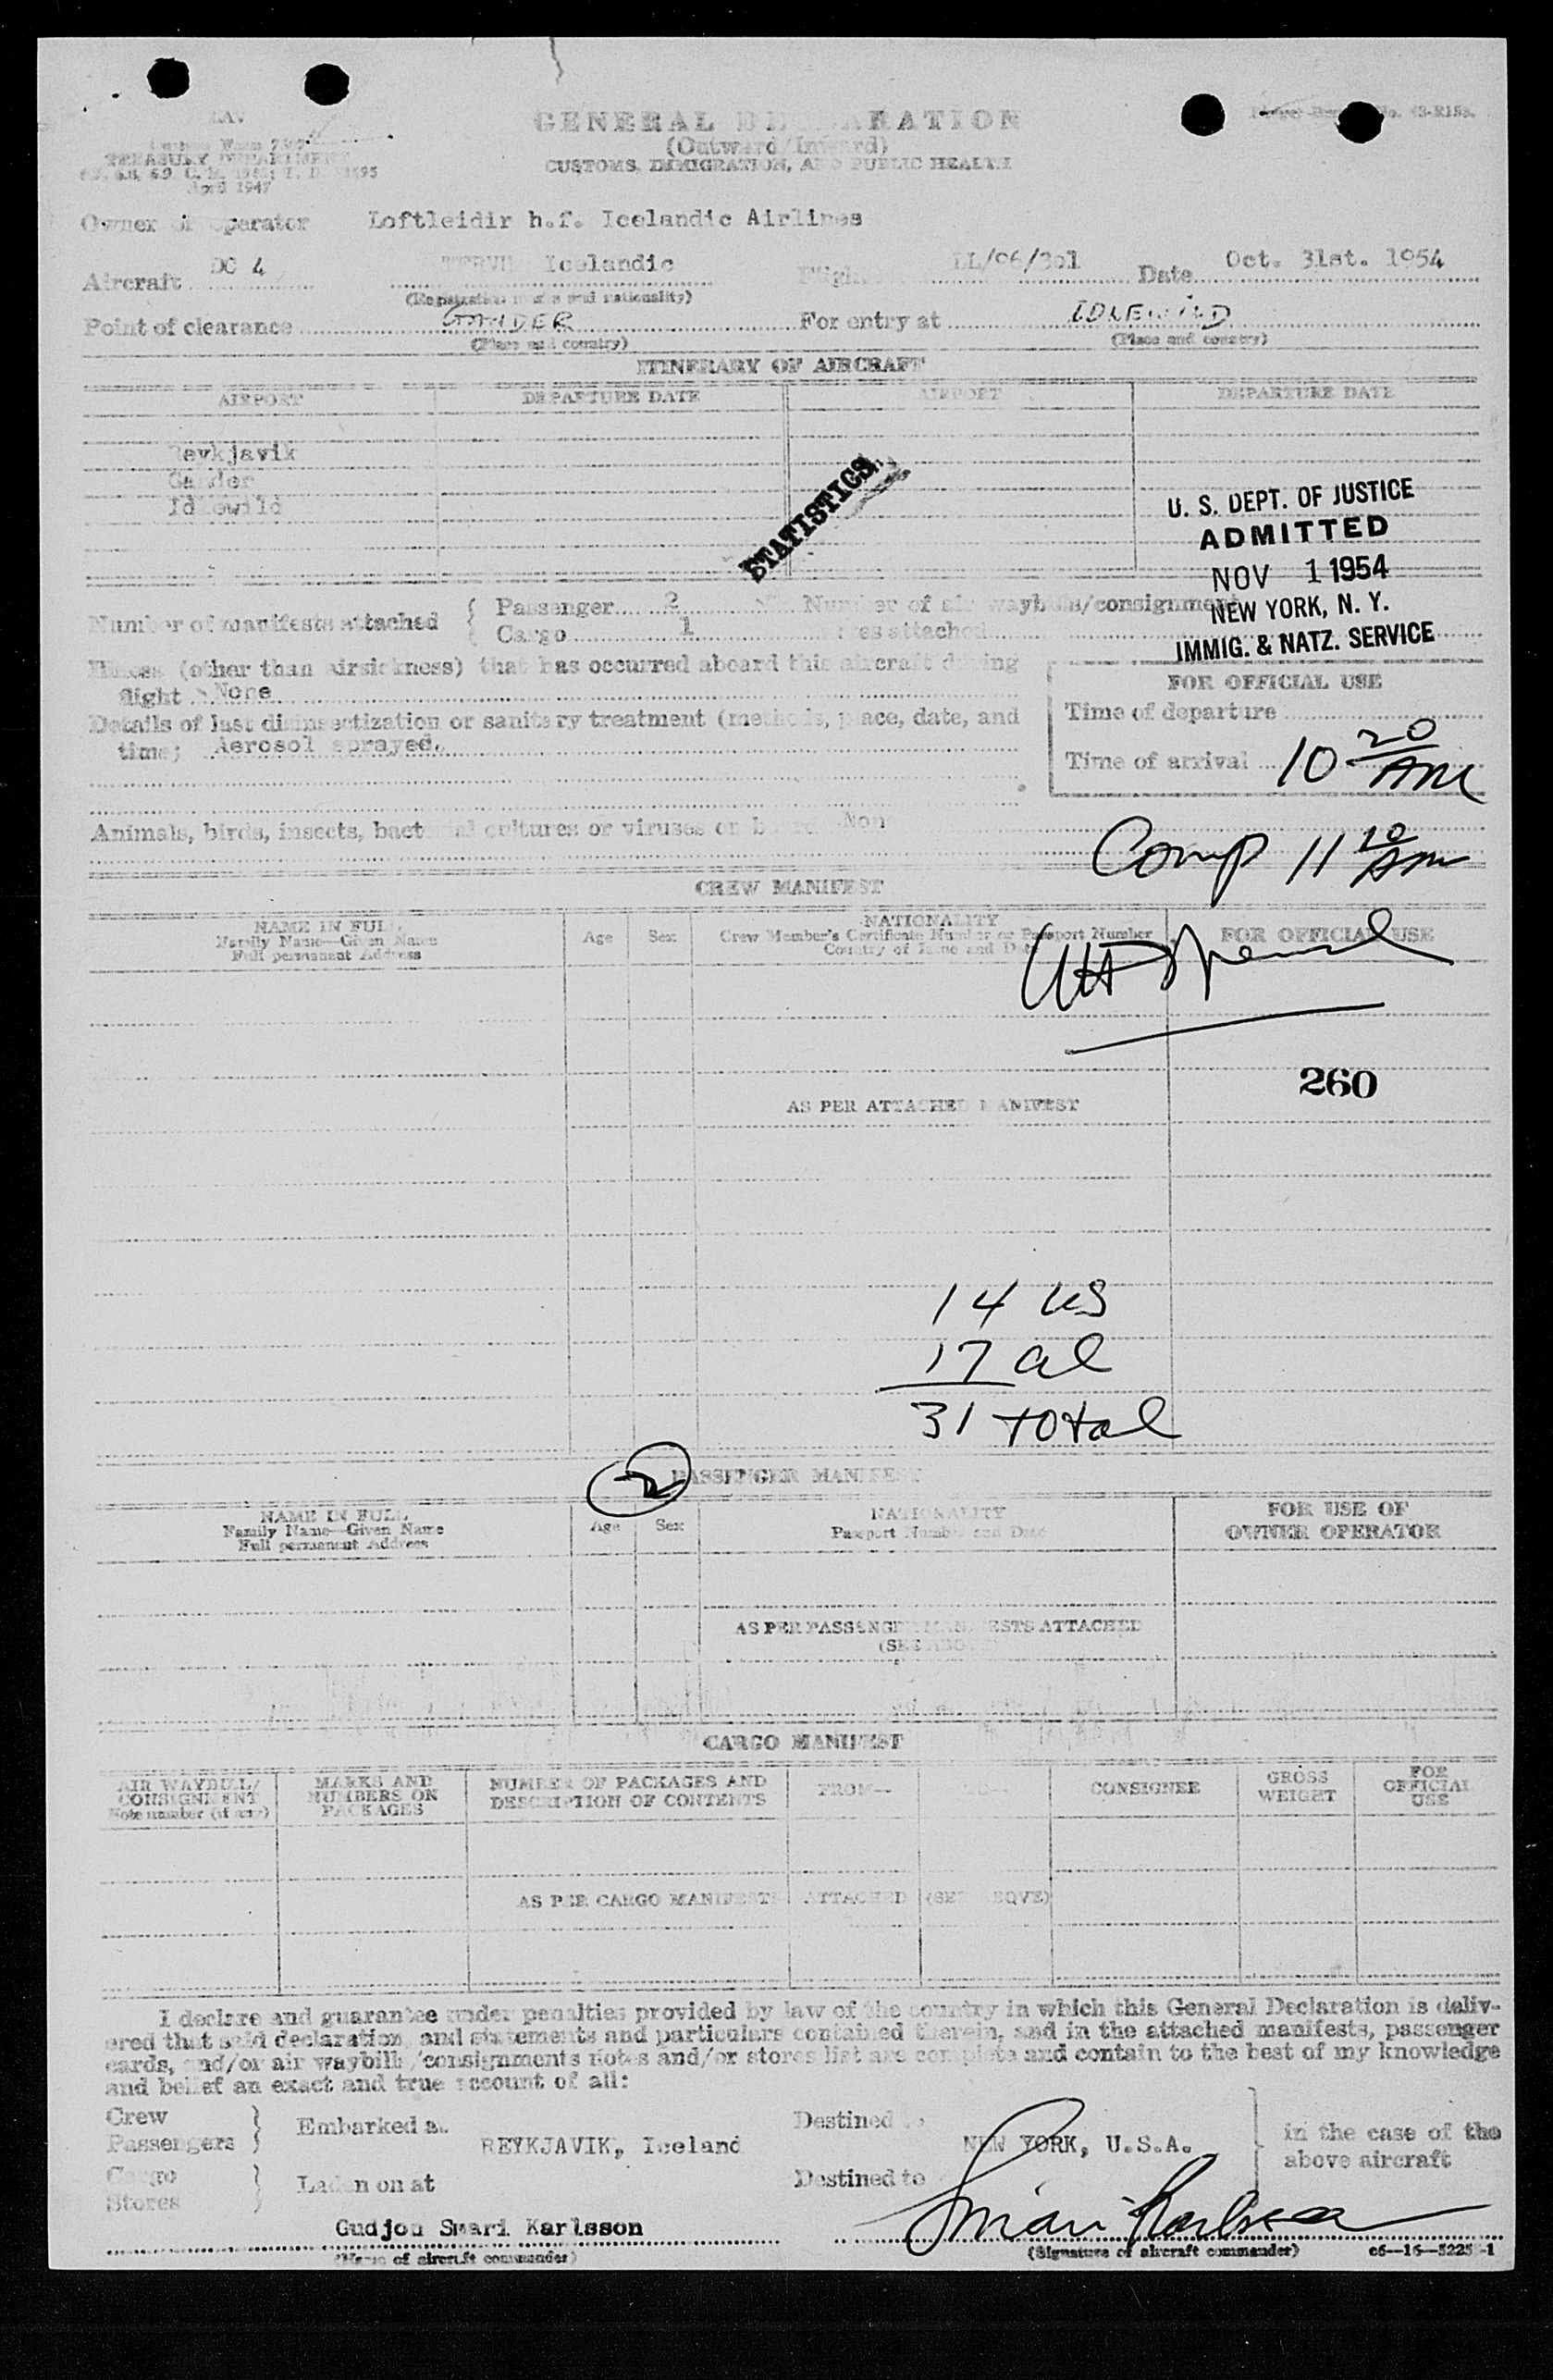 GENERAL DECLARATION
(Outward/Inward)
CUSTOMS, IMMIGRATION, AND PUBLIC HEALTH
TREASURY DEPARTMENT
April 1947
Owner or operator Loftleidir h.f. Icelandic Airlines
Aircraft DC 4 Icelandic Flight LL/06/301 Date Oct. 31st. 1954
(Registration marks and nationality)
Point of clearance GANDER For entry at IDLEWILD
(Place and country) (Place and country)
ITINERARY OF AIRCRAFT
AIRPORT DEPARTURE DATE AIRPORT DEPARTURE DATE
Reykjavik
Gander
Idlewild
STATISTICS
U. S. DEPT. OF JUSTICE
ADMITTED
NOV 1 1954
NEW YORK, N. Y.
IMMIG. & NATZ. SERVICE
Number of manifests attached { Passenger 2 Number of air waybills/consignment
Cargo 1 notes attached
Illness (other than airsickness) that has occurred aboard this aircraft during
flight None
Details of last disinsectization or sanitary treatment (methods, place, date, and
time; Aerosol sprayed.
FOR OFFICIAL USE
Time of departure
Time of arrival 10 20 AM
Animals, birds, insects, bacterial cultures or viruses on board None
Comp 11 20 AM
CREW MANIFEST
NAME IN FULL
Family Name—Given Name
Full permanent Address
Age Sex
NATIONALITY
Crew Member's Certificate Number or Passport Number
Country of Issue and Date
FOR OFFICIAL USE
260
AS PER ATTACHED MANIFEST
14 US
17 al
31 total
2
PASSENGER MANIFEST
NAME IN FULL
Family Name—Given Name
Full permanent Address
Age Sex
NATIONALITY
Passport Number and Date
FOR USE OF
OWNER OPERATOR
AS PER PASSENGER MANIFESTS ATTACHED
(SEE ABOVE)
CARGO MANIFEST
AIR WAYBILL/
CONSIGNMENT
Note number (if any)
MARKS AND
NUMBERS ON
PACKAGES
NUMBER OF PACKAGES AND
DESCRIPTION OF CONTENTS
FROM— TO— CONSIGNEE
GROSS
WEIGHT
FOR
OFFICIAL
USE
AS PER CARGO MANIFESTS ATTACHED (SEE ABOVE)
I declare and guarantee under penalties provided by law of the country in which this General Declaration is deliv-
ered that said declaration, and statements and particulars contained therein, and in the attached manifests, passenger
cards, and/or air waybills/consignments notes and/or stores list are complete and contain to the best of my knowledge
and belief an exact and true account of all:
Crew
Passengers } Embarked at REYKJAVIK, Iceland Destined to NEW YORK, U.S.A. } in the case of the
above aircraft
Cargo
Stores } Laden on at Destined to
Gudjon Smari Karlsson Smári Karlsson
(Name of aircraft commander) (Signature of aircraft commander)